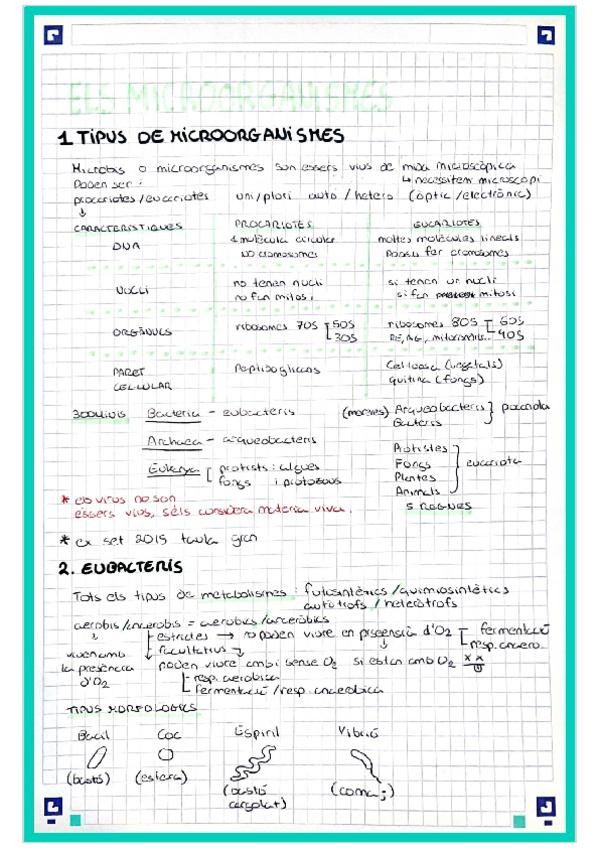 ELS MICROORGANISMES
1 TIPUS DE MICROORGANISMES
Microbis o microorganismes son essers vius de mida microscòpica
Poden ser: ↳ necessiten microscopi
procariotes/eucariotes uni/pluri auto/hetero (òptic/electrònic)
CARACTERÍSTIQUES PROCARIOTES EUCARIOTES
DNA 1 molècula circular moltes molècules lineals
NO cromosomes Poden fer cromosomes
NUCLI no tenen nucli si tenen un nucli
no fan mitosi si fan mitosi
ORGÀNULS ribosomes 70S 50S 30S ribosomes 80S 60S 40S
RE, AG, mitocondris..
PARET CEL·LULAR Peptidoglicans Cel·lulosa (vegetals)
quitina (fongs)
3 DOMINIS Bacteria - eubacteris (moneres) Arqueobacteris procariota
Bacteris
Archaea - arqueobacteris
Eukarya protists: algues
fongs i protozous
Protistes
Fongs eucariota
Plantes
Animals
5 REGNES
* els virus no son
éssers vius, se'ls considera matèria viva.
* ex set 2015 taula gran
2. EUBACTERIS
Tots els tipus de metabolismes: fotosintètics/quimiosintètics
autòtrofs/heteròtrofs
aerobis/anaerobis = aerobics/anaeròbics
↓ estrictes → no poden viure en presència d'O2 fermentació
resp. anaero.
viuen amb facultatius
la presència poden viure amb i sense O2 si estan amb O2
d'O2 resp. aeròbica
fermentació/resp. anaeròbica
TIPUS MORFOLÒGICS
Bacil Coc Espiril Vibrió
(bastó) (esfera) (bastó cargolat) (coma ;)